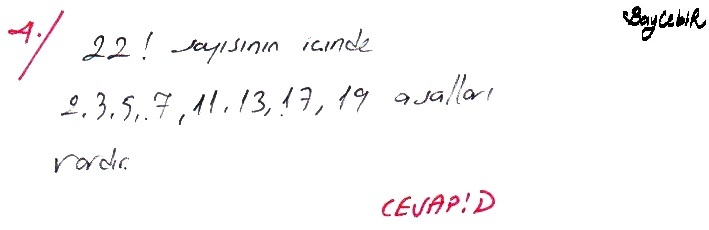 BayCebir
4./ 22! sayısının içinde
2.3.5,.7,11.13,17,19 asalları
vardır.
CEVAP:D